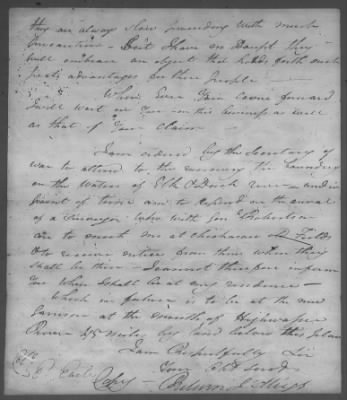 they are always slow proceeding with much
precaution - But I have no Doubt they
will embrace an object that holds forth such
great advantages for their people -
When Ever Gain comes forward
I will wait on you on this business as well
as that of Your Claim
I am ordered by the Secretary of
war to attend to the running the boundary
on the Waters of Elk & Duck river - and in
of time am to the arrival
of a Surveyor who with Gen Robertson
are to meet me at chickasaw
& to receive notice from them when they
shall be there - I cannot therefore inform
You when I shall be at my residence -
Which in future is to be at the new
Garrison at the mouth of Highwassee
River 45 miles by land below this place
I am Respectfully Sir
Your Obt Servt
Copy - Return J. Meigs